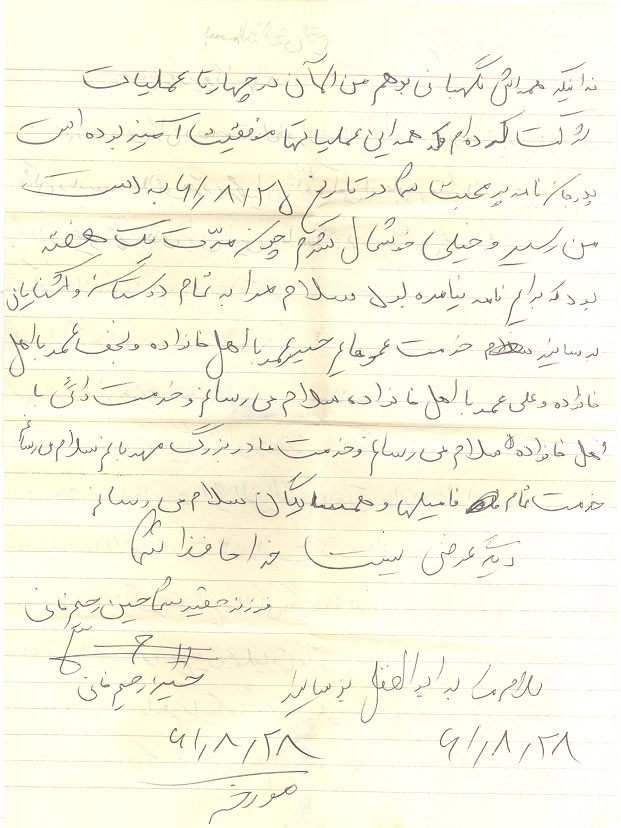 نه اینکه همه‌اش نگهبانی بوهم من الآن در چهار تا عملیات
شرکت کرده‌ام که همه این عملیاتها موفقیت آمیز بوده است
پدرجان نامه پر محبت شما در تاریخ ۶۱/۸/۲۵ به دست
من رسید و خیلی خوشحال شدم چون مدّت یک هفته
بود که برایم نامه نیامده بود سلام مرا به تمام دوستان و آشنایان
برسانید خدمت عموهایم حسیر عمد با اهل خانواده و نجف عمد با اهل
خانواده و علی عمد با اهل خانواده سلام می رسانم و خدمت دائی با
اهل خانواده سلام می رسانم و خدمت مادر بزرگ مهربانم سلام می رسانم
خدمت تمام فامیلها و همسایگان سلام می رسانم
دیگر عرضی نیست خدا حافظ شما
فرزند حقیر شما حسین رحیم خانی
حسین رحیم خانی
سلام مرا به ابوالفضل برسانید
۶۱/۸/۲۸ ۶۱/۸/۲۸
مورخه